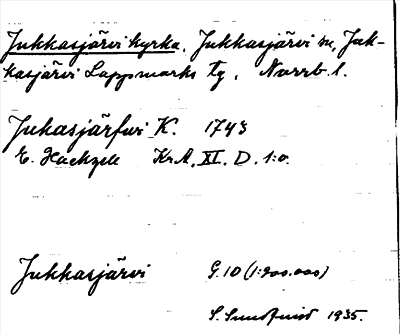 Jukkasjärvi kyrka, Jukkasjärvi sn, Juk-
kasjärvi Lappmarks tg, Norrb. l.
Jukasjärfwi K. 1743
E. Hackzell Kr.A. XI. D. 1:o.
Jukkasjärvi G. 10 (1:200.000)
S. Sundquist 1935.